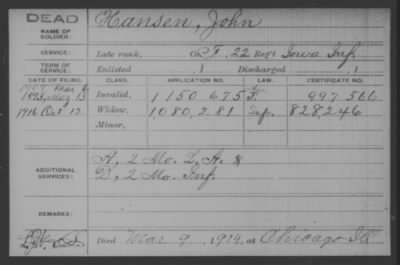 DEAD
NAME OF SOLDIER: Hansen, John
SERVICE: Late rank, Co. F, 22 Reg't Iowa Inf
TERM OF SERVICE: Enlisted , 1 Discharged , 1
DATE OF FILING. CLASS. APPLICATION NO. LAW. CERTIFICATE NO.
1907 Mar 6
1893, Aug 15 Invalid. 1150 675 997 566
1916 Oct 17 Widow. 1080, 281 828246
Minor.
ADDITIONAL SERVICES: A, 2 Mo. L, A. &
D, 2 Mo. Inf
REMARKS:
Died Mar 9, 1914, at Chicago Ill